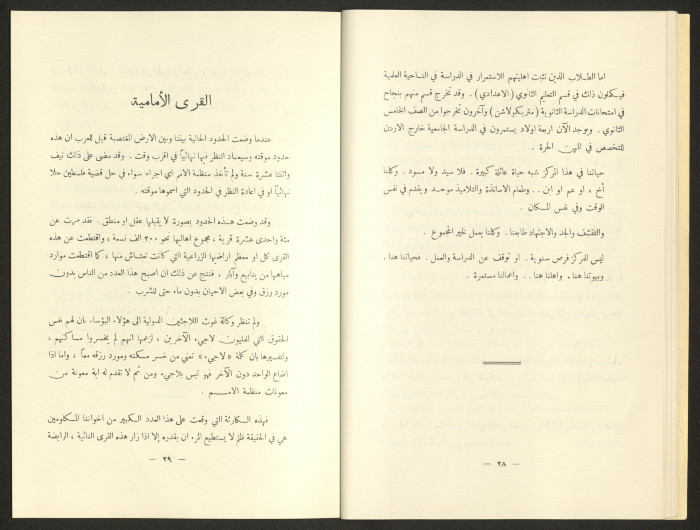 اما الطلاب الذين تثبت اهليتهم للاستمرار في الدراسة في الناحية العلمية
فيكملون ذلك في قسم التعليم الثانوي (الاعدادي) . وقد تخرج قسم منهم بنجاح
في امتحانات الدراسة الثانوية (متريكولاشن) وآخرون تخرجوا من الصف الخامس
الثانوي . ويوجد الآن اربعة اولاد يستمرون في الدراسة الجامعية خارج الاردن
للتخصص في المهن الحرة .
حياتنا في هذا المركز شبه حياة عائلة كبيرة . فلا سيد ولا مسود . وكلنا
أخ ، او عم او ابن . . وطعام الاساتذة والتلاميذ موحد ويقدم في نفس
الوقت وفي نفس المكان .
والتقشف والجد والاجتهاد طابعنا . وكلنا يعمل لخير المجموع .
ليس للمركز فرص سنوية . او توقف عن الدراسة والعمل . فحياتنا هنا .
وبيوتنا هنا . واهلنا هنا . . واعمالنا مستمرة .
— ٢٨ —
القرى الأمامية
عندما وضعت الحدود الحالية بيننا وبين الارض المغتصبة قيل للعرب ان هذه
حدود موقتة وسيعاد النظر فيها نهائياً في اقرب وقت . وقد مضى على ذلك نيف
واثنتا عشرة سنة ولم تأخذ منظمة الامم اي اجراء سواء في حل قضية فلسطين حلا
نهائياً او في اعادة النظر في الحدود التي اسموها موقتة .
وقد وضعت هذه الحدود بصورة لا يقبلها عقل او منطق . فقد مرت عن
مئة واحدى عشرة قرية ، مجموع اهاليها نحو ٢٠٠ الف نسمة ، واقتطعت عن هذه
القرى كل او معظم اراضيها الزراعية التي كانت تعتاش منها ، كما اقتطعت موارد
مياهها من ينابيع وآبار ، فنتج عن ذلك ان اصبح هذا العدد من الناس بدون
مورد رزق وفي بعض الاحيان بدون ماء حتى للشرب .
ولم تنظر وكالة غوث اللاجئين الدولية الى هؤلاء البؤساء بان لهم نفس
الحقوق التي للمليون لاجىء الآخرين ، لزعمها انهم لم يخسروا مساكنهم ،
ولتفسيرها بان كلمة « لاجىء » تعني من خسر مسكنه ومورد رزقه معاً ، واما اذا
اضاع الواحد دون الآخر فهو ليس بلاجىء ومن ثم لا تقدم له اية معونة من
معونات منظمة الامم .
فهذه الكارثة التي وقعت على هذا العدد الكبير من اخواننا المنكوبين
هي في الحقيقة ظلم لا يستطيع المرء ان يقدره إلا اذا زار هذه القرى النائية ، الرابضة
— ٢٩ —